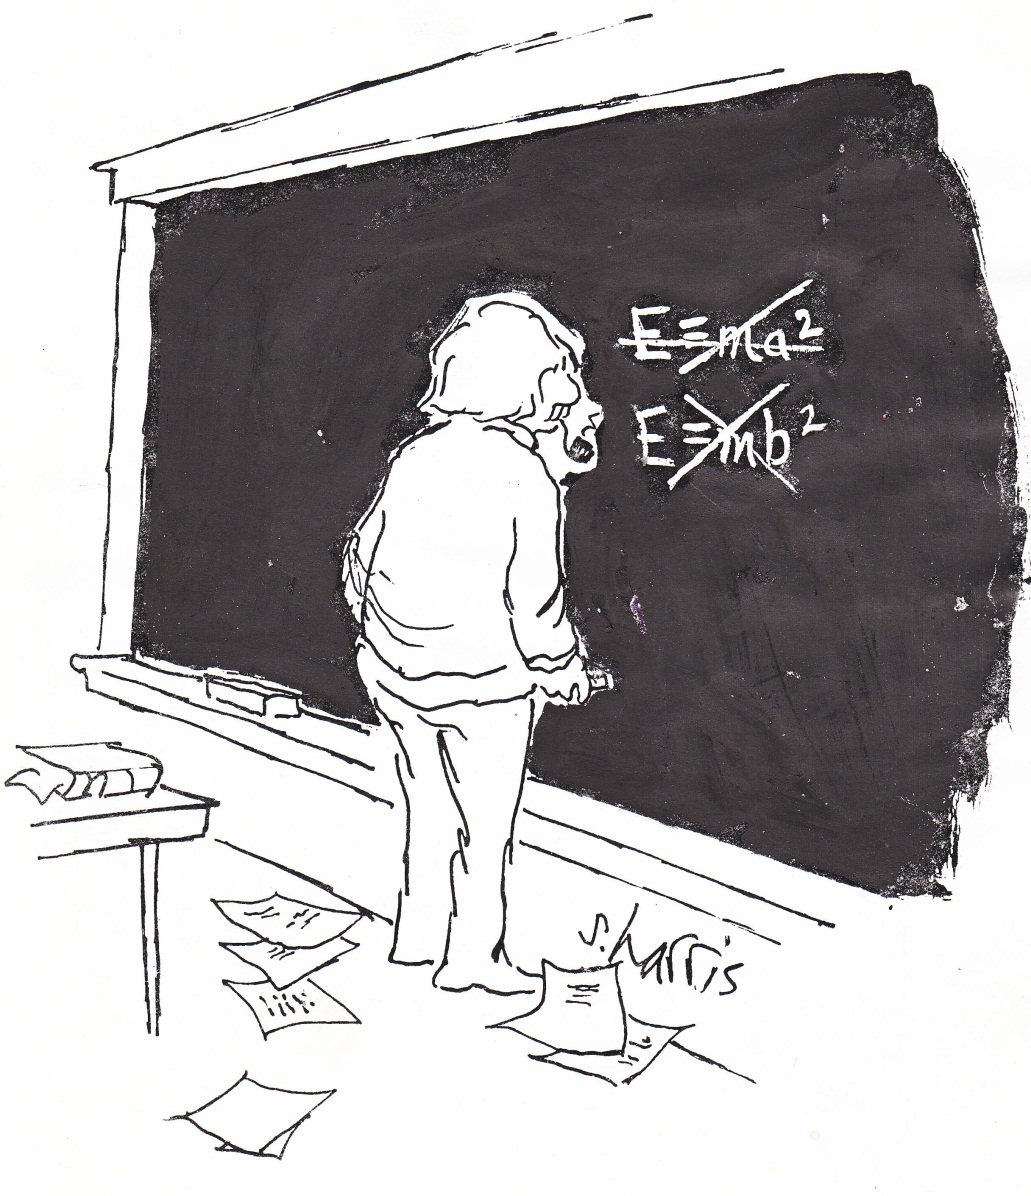 E=ma²
E=mb²
S. Harris